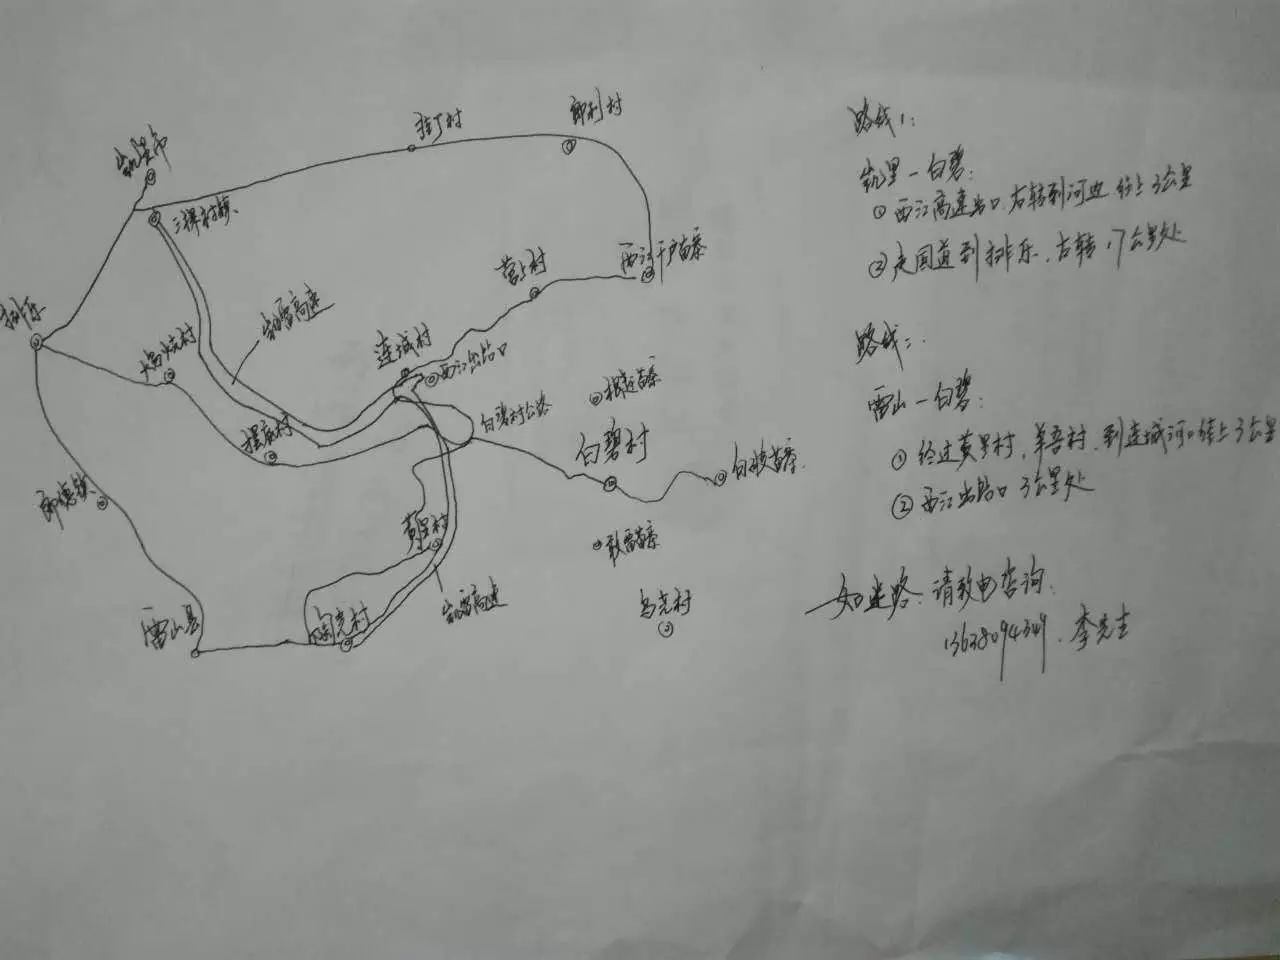 凯里市
三棵树镇
挂丁村
郎利村
西江千户苗寨
营上村
排乐
凯雷高速
连城村
西江出站口
白碧村公路
白碧村
郎德镇
黄里村
雷山县
凯雷高速
乌尧村
路线1:
凯里—白碧:
①西江高速出口.右转到河边 往上3公里
②走国道到排乐.右转17公里处
路线二:
雷山—白碧:
①经过黄里村.到连城河口往上3公里
②西江出站口 3公里处
如迷路:请致电咨询:
13638094349.李先生